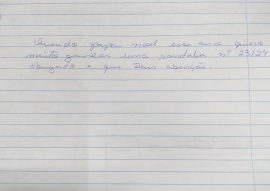 Querido papai noel esse ano quero
muito ganhar uma sandalia nº 23/24
obrigado e que Deus abençoe